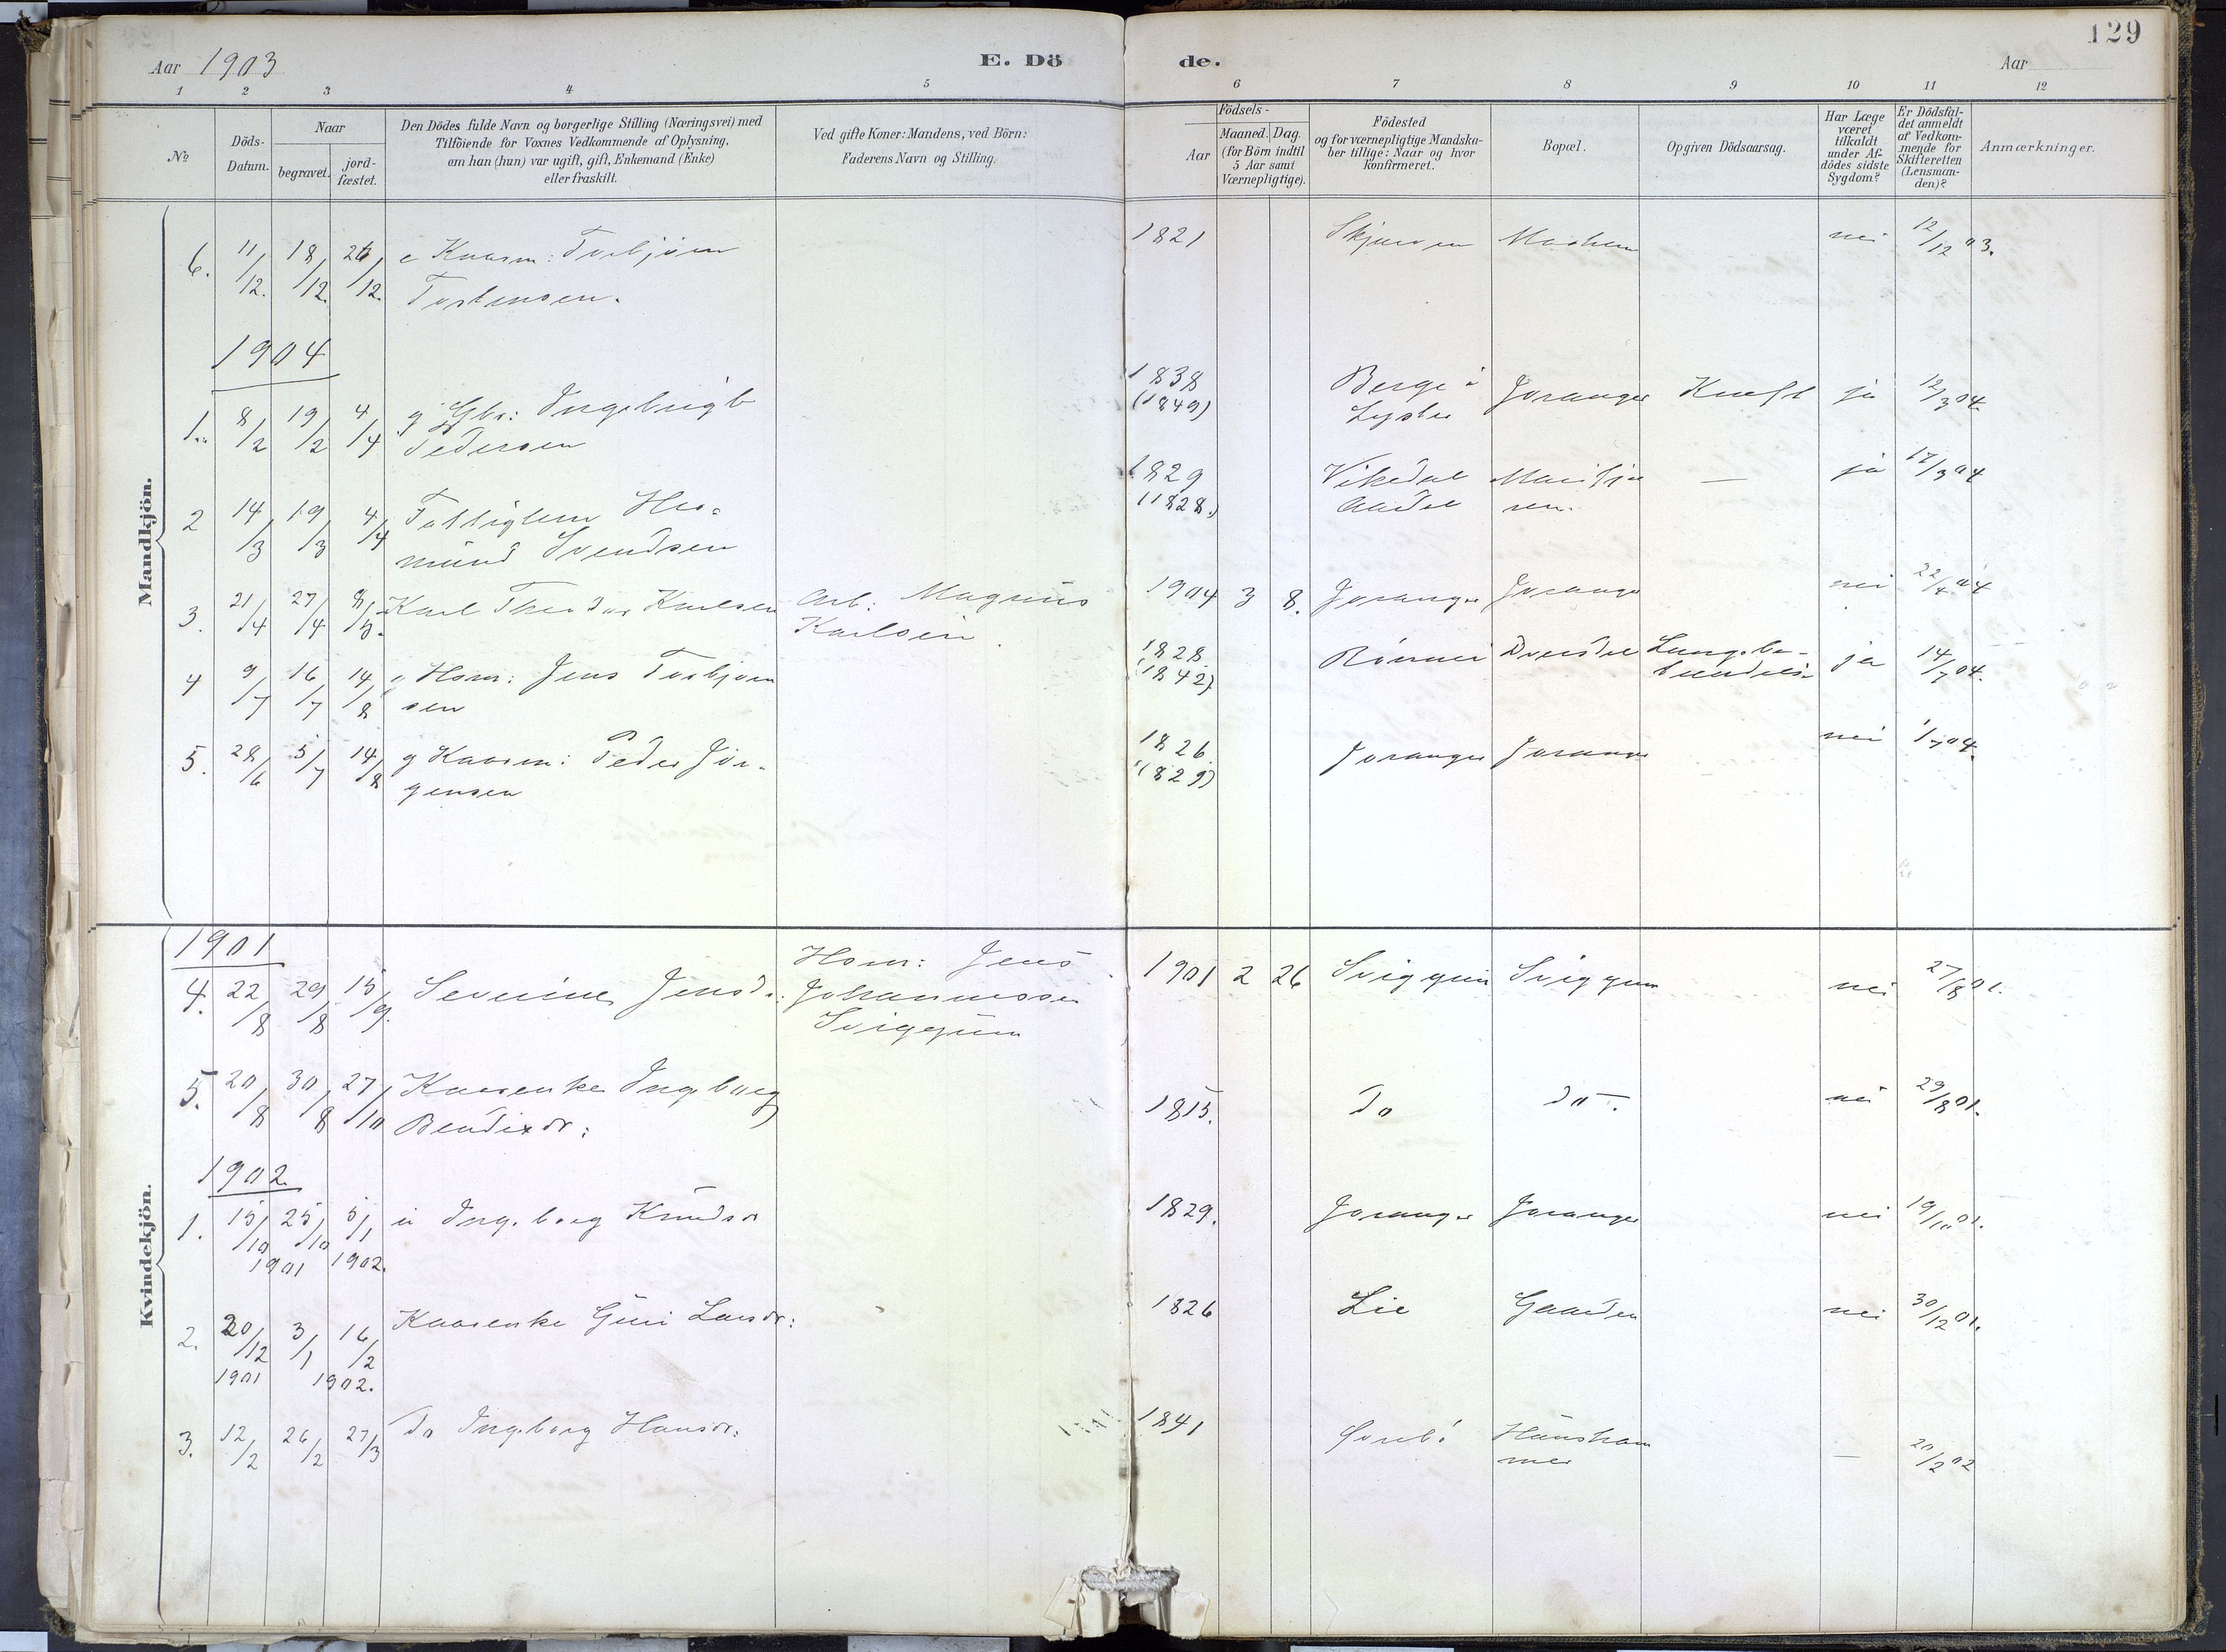 129
Aar 1903 E. Dö de. Aar
1 2 3 4 5 6 7 8 9 10 11 12
No
Döds-Datum.
Naar
begravet.
jord-fæstet.
Den Dödes fulde Navn og borgerlige Stilling (Næringsvei) med
Tilföiende for Voxnes Vedkommende af Oplysning,
om han (hun) var ugift, gift, Enkemand (Enke)
eller fraskilt.
Ved gifte Koner: Mandens, ved Börn:
Faderens Navn og Stilling.
Födsels-
Aar
Maaned. Dag.
(for Börn indtil
5 Aar samt
Værnepligtige).
Födested
og for værnepligtige Mandska-
ber tillige: Naar og hvor
konfirmeret.
Bopæl.
Opgiven Dödsaarsag.
Har Læge
været
tilkaldt
under Af-
dödes sidste
Sygdom?
Er Dödsfal-
det anmeldt
af Vedkom-
mende for
Skifteretten
(Lensman-
den)?
Anmærkninger.
Mandkjön.
6. 11/12. 18/12 26/12. e Kaarm: Torbjörn 1821 nei 12/12 03.
1904
1. 8/2 19/2 4/4 g Gbr: Ingebrigt 1838 Berge i Joranger Kræft ja 12/3 04.
Pedersen (1849) Lyster
2 14/3 19/3 4/4 Her- 1829 Vikedal — ja 17/3 04
mund Svendsen (1828.)
3. 21/4 27/4 8/5. Karl Theodor Karlsen Arb: Magnus 1904 3 8. Joranger Joranger nei 22/4 04
Karlsen
4 9/7 16/7 14/8 Hsm: Jens Torbjörn 1828. ja 14/7 04.
sen (1842)
5. 28/6 5/7 14/8 g Kaarm: Peder Jör- 1826. Joranger Joranger nei 1/7 04.
gensen (1829)
Kvindekjön.
1901
4. 22/8 29/8 15/9. Severine Jensd.: Hsm: Jens 1901 2 26 Sviggum Sviggum nei 27/8 01.
Johannessen
Sviggum
5. 20/8 30/8 27/10 Kaarenke Ingeborg 1815. do do. nei 29/8 01.
Bendixdr:
1902.
1. 15/10 25/10 5/1 u Ingeborg Knudsdr 1829. Joranger Joranger nei 19/10 01.
1901 1902.
2. 20/12 3/1 16/2 Kaarenke Guri Larsdr: 1826 Lie Gaarden nei 30/12 01.
1901 1902.
3. 12/2 26/2 27/3 do Ingeborg Hansdr: 1841 — 20/2 02